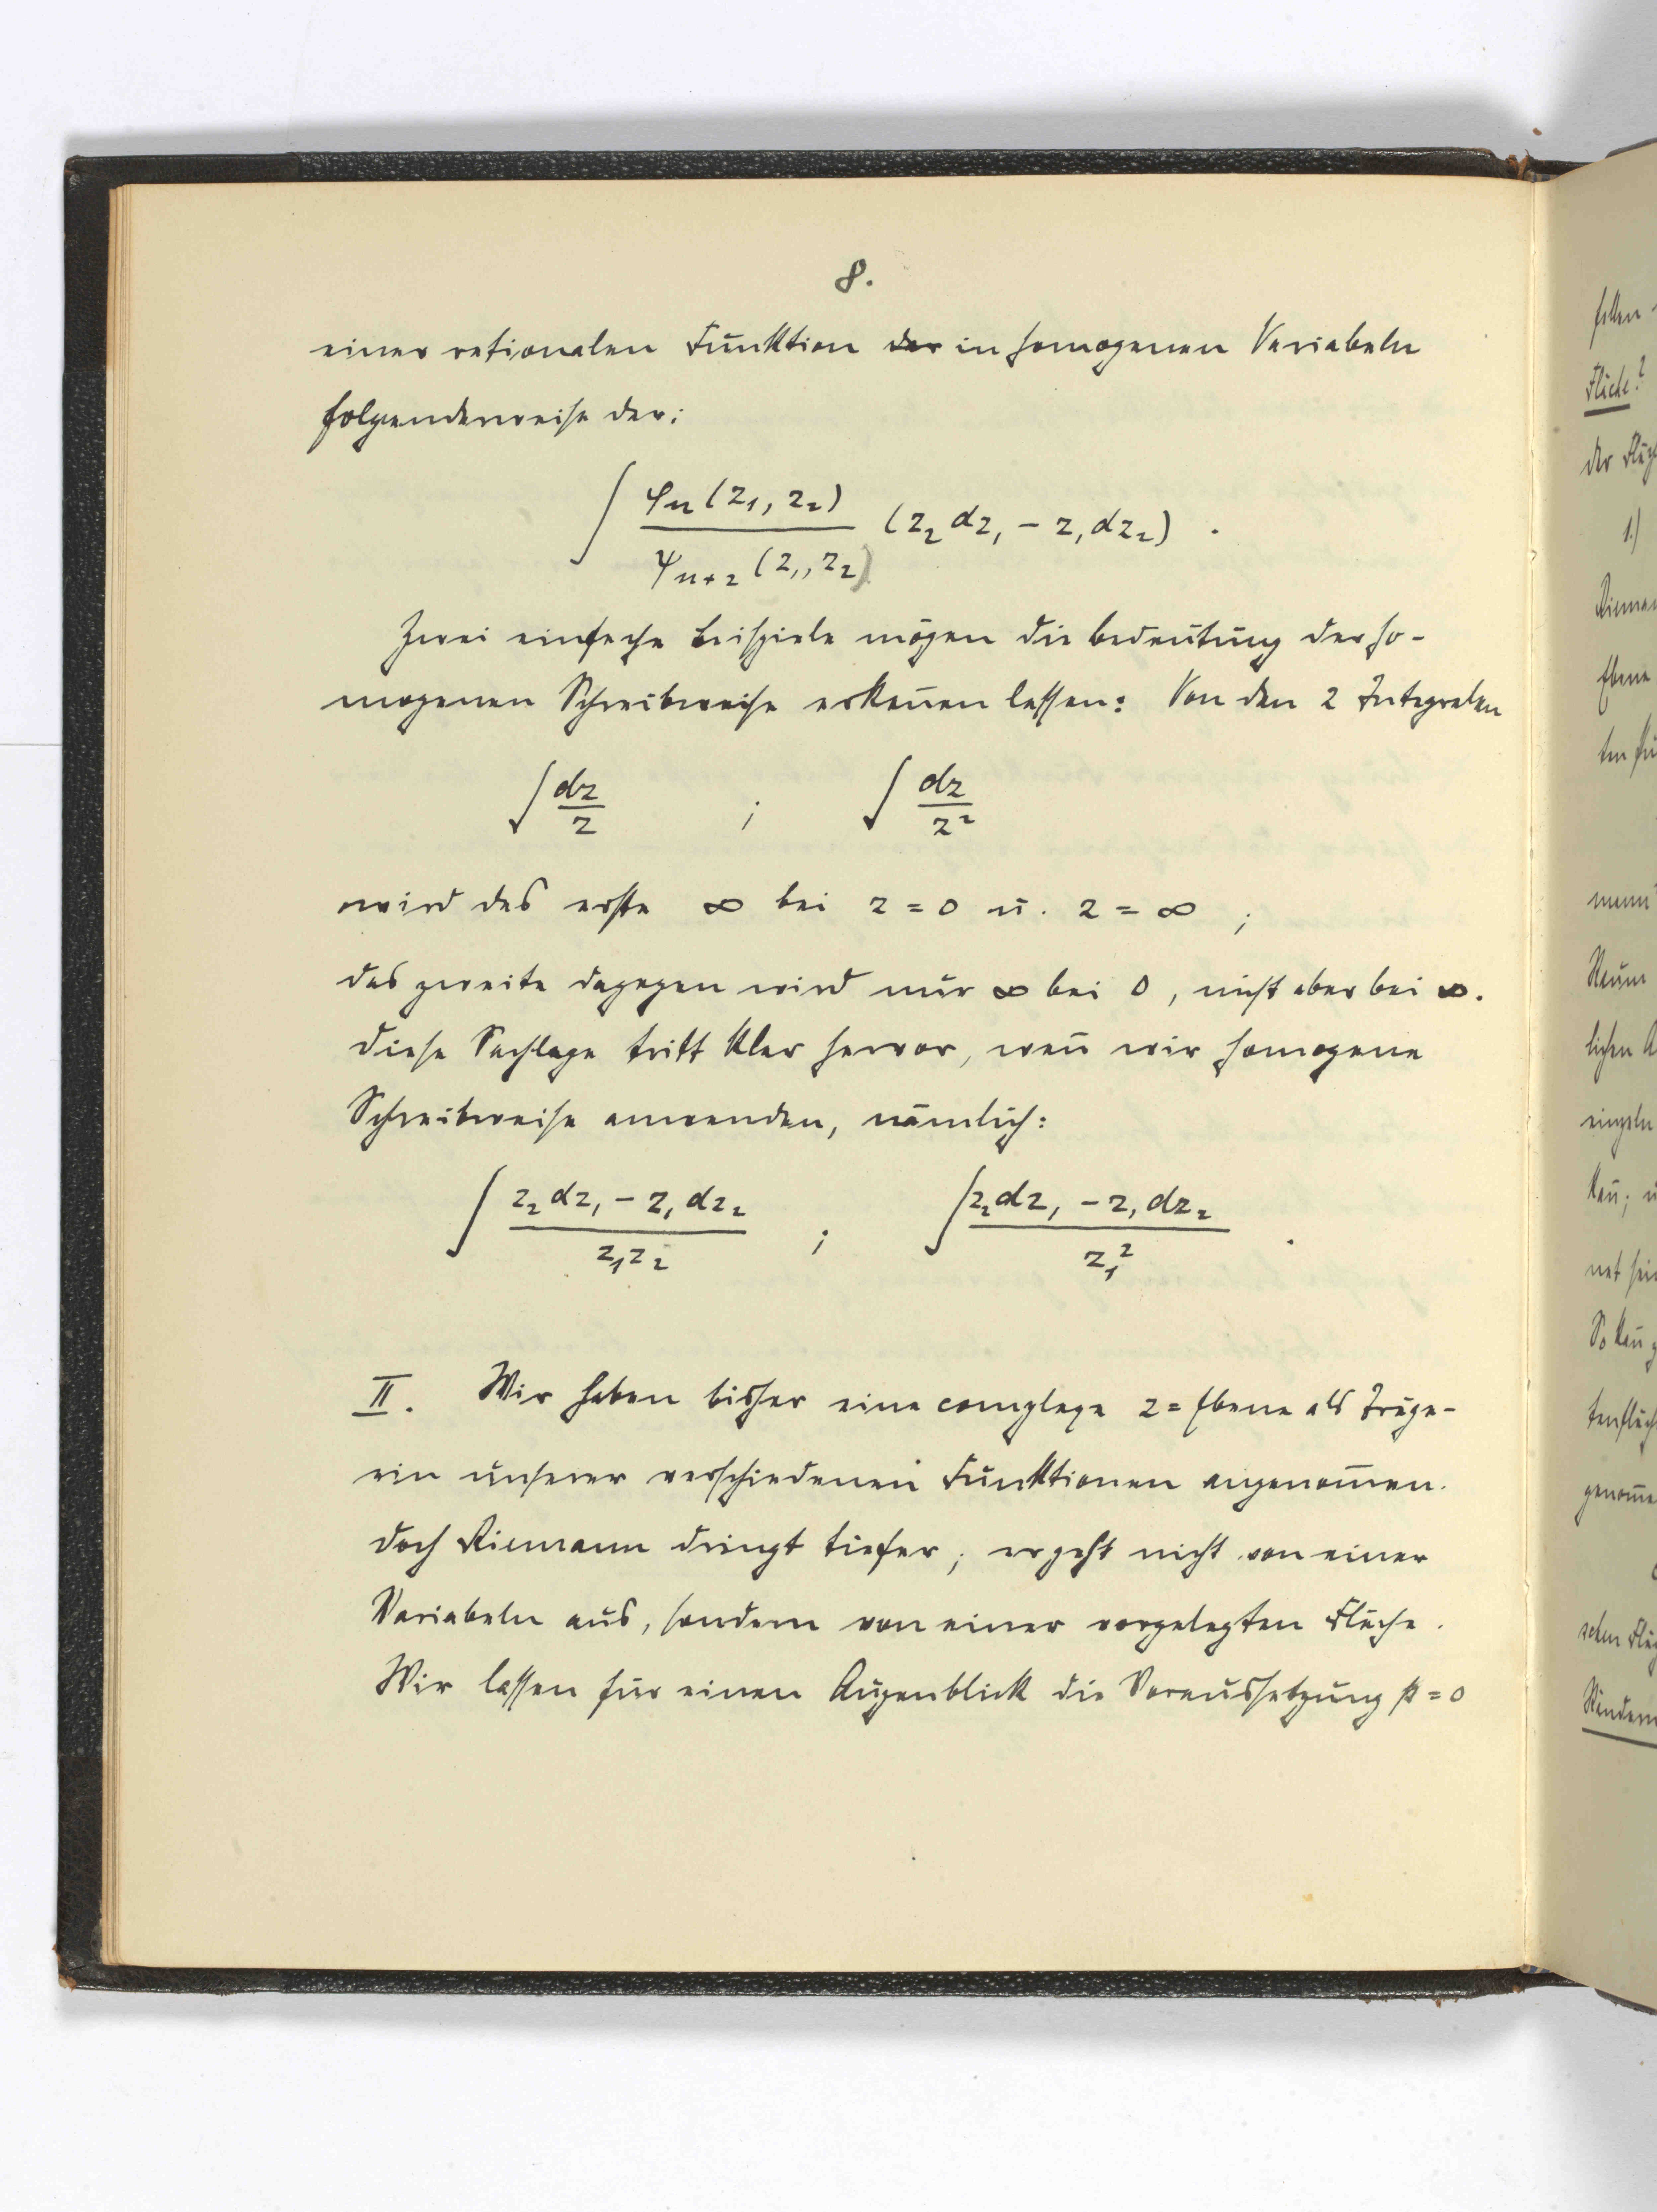 8.
einer rationalen Funktion der in homogenen Variabeln
folgenderweise dar:
∫ φn(z₁, z₂) / ψn+2(z₁, z₂) (z₂ dz₁ − z₁ dz₂) .
Zwei einfache Beispiele mögen die Bedeutung der ho-
mogenen Schreibweise erkennen lassen: Von den 2 Integralen
∫ dz/z ; ∫ dz/z²
wird das erste ∞ bei z = 0 u. z = ∞ ;
das zweite dagegen wird nur ∞ bei 0, nicht aber bei ∞.
Diese Sachlage tritt klar hervor, wen̄ wir homogene
Schreibweise anwenden, nämlich:
∫ (z₂ dz₁ − z₁ dz₂) / z₁z₂ ; ∫ (z₂ dz₁ − z₁ dz₂) / z₁² .
II. Wir haben bisher eine complexe z = Ebene als Träge-
rin unserer verschiedenen Funktionen angenom̄en.
Doch Riemann dringt tiefer; er geht nicht von einer
Variabeln aus, sondern von einer vorgelegten Fläche.
Wir lassen für einen Augenblick die Voraussetzung p = 0
Fläche?
der
1.)
Ebene